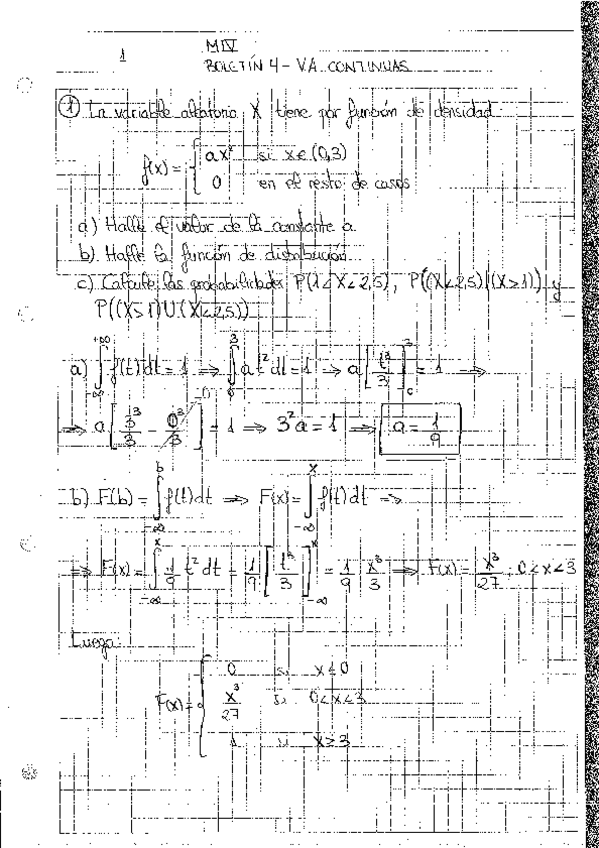 1
MIV
BOLETÍN 4 - V.A. CONTINUAS
① La variable aleatoria X tiene por función de densidad:
f(x) = { ax² si x ∈ (0,3)
0 en el resto de casos
a) Halle el valor de la constante a
b) Halle la función de distribución
c) Calcule las probabilidades P(1<X<2,5), P((X<2,5)/(X>1)) y
P((X>1)U(X<2,5))
a) ∫_{-∞}^{+∞} f(t)dt = 1 ⇒ ∫_0^3 at²dt = 1 ⇒ a[t³/3]_0^3 = 1 ⇒
⇒ a[3³/3 - 0³/3] = 1 ⇒ 3²a = 1 ⇒ a = 1/9
b) F(b) = ∫_{-∞}^b f(t)dt ⇒ F(x) = ∫_{-∞}^x f(t)dt ⇒
⇒ F(x) = ∫_{-∞}^x 1/9 t²dt = 1/9 [t³/3]_{-∞}^x = 1/9 x³/3 ⇒ F(x) = x³/27 ; 0<x<3
Luego:
F(x) = { 0 si x≤0
x³/27 si 0<x<3
1 si x≥3